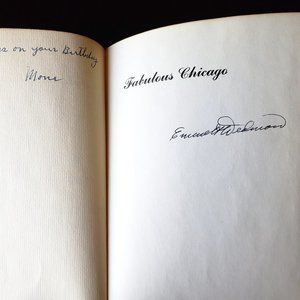 es on your Birthday
Mons
Fabulous Chicago
Emmett Dedmon